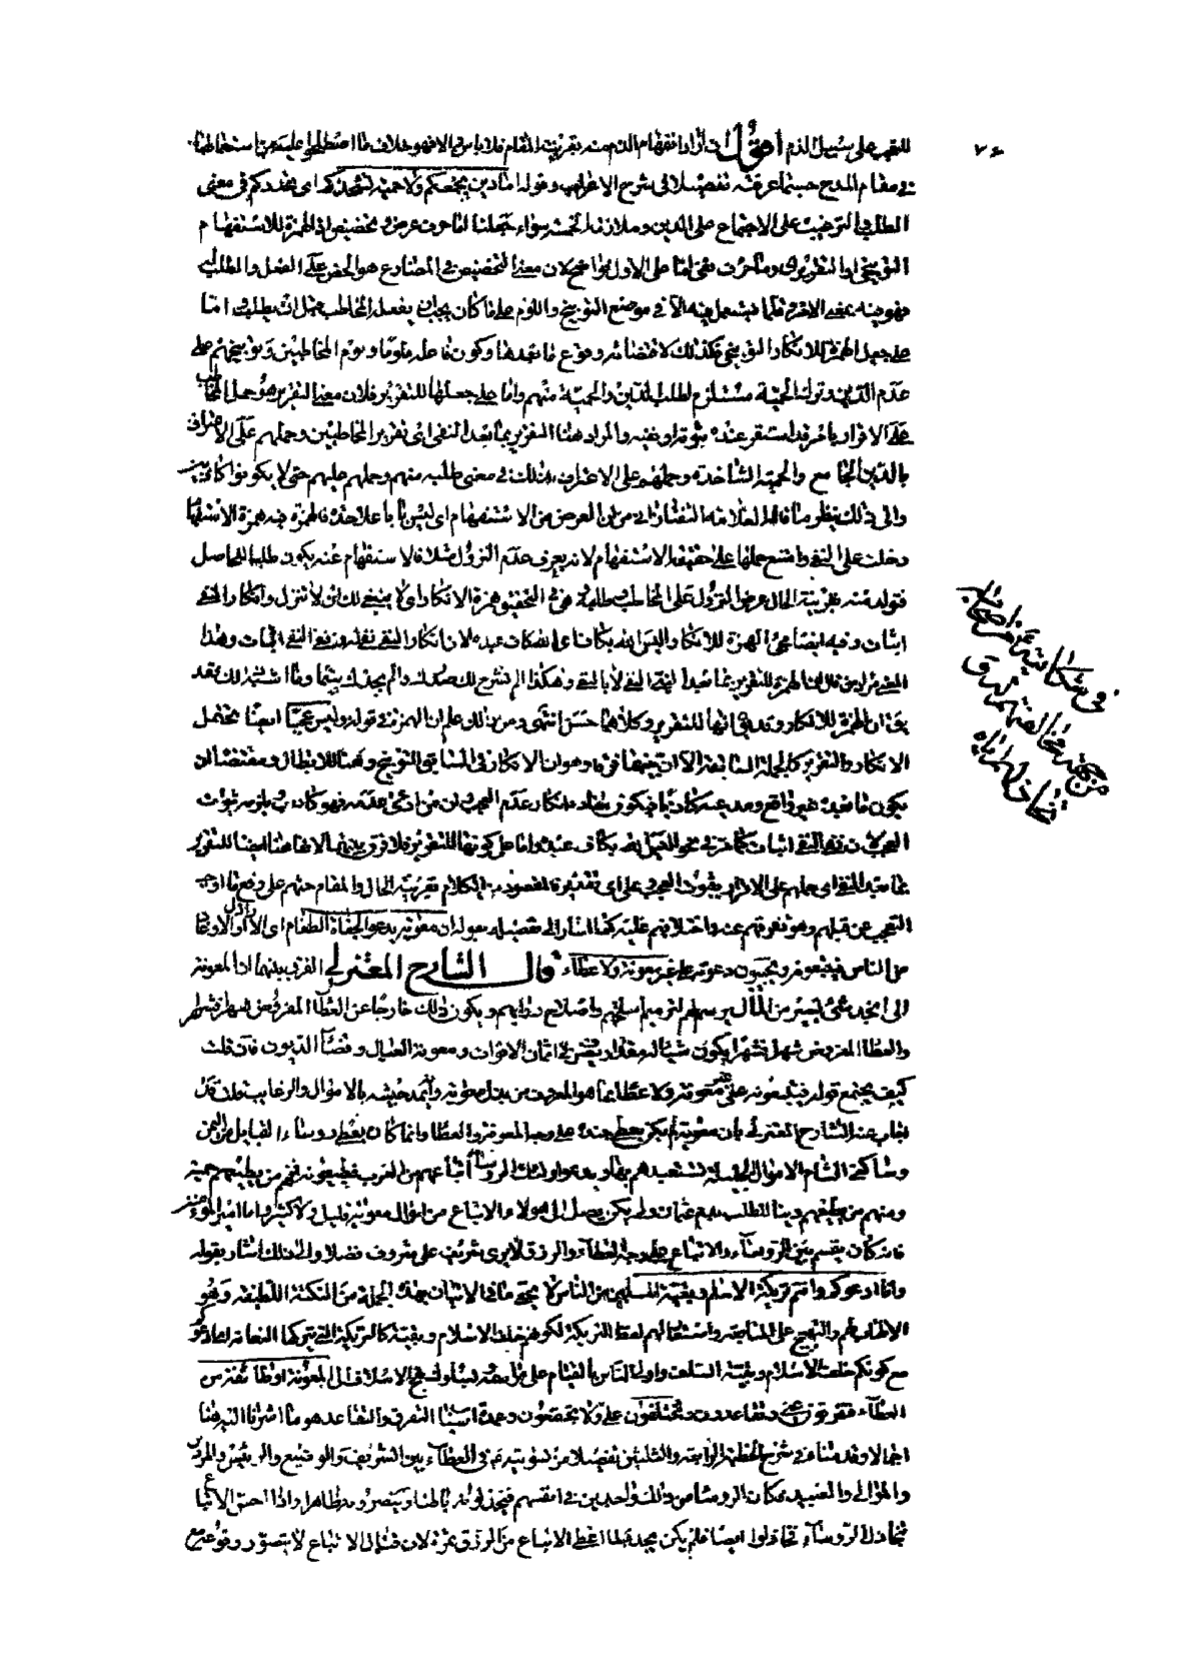 ٧٤
للتعجب على سبيل الذم أقول ان أراد انفهام الذم منه بقرينة المقام فلا بأس والا فهو خلاف ما اصطلحوا عليه من استعمالها
في مقام المدح حسبما عرفته تفصيلا في شرح الاعراب وقوله أما دين يجمعكم ولا حمية تشحذكم اي تحددكم في معنى
الطلب والترغيب على الاجتماع على الدين وملازمة الحمية سواء جعلنا اما حرف عرض وتحضيض او الهمزة للاستفهام
التوبيخي او التقريري وما حرف نفى اما على الأول فواضح لان معنى التحضيض في المضارع هو الحض على الفعل والطلب له
فهو فيه بمعنى الامر فلما يستعمل فيه الا في موضع التوبيخ واللوم على ما كان يجب ان يفعله المخاطب قبل ان يطلب واما
على جعل الهمزة للانكار التوبيخي فكذلك لاقتضائه وقوع ما بعدها وكون فاعله ملوما ولوم المخاطبين وتوبيخهم على
عدم الدين وترك الحمية مستلزم لطلب الدين والحمية منهم واما على جعلها للتقرير فلان معنى التقرير هو حمل المخاطب
على الاقرار بامر قد استقر عنده ثبوته او نفيه والمراد هنا التقرير بما بعد النفى اى تقرير المخاطبين وحملهم على الاعتراف
بالدين الجامع والحمية الشاحذة وحملهم على الاعتراف بذلك في معنى طلبه منهم وحملهم عليهم حتى لا يكونوا كاذبين
والى ذلك ينظر ما قاله العلامة التفتازاني من ان العرض من الاستفهام اى ليس بابا على حدة فالهمزة فيه همزة الاستفهام
دخلت على النفى وامتنع حملها على حقيقة الاستفهام لانه يعرف عدم النزول مثلا فالاستفهام عنه يكون طلبا للحاصل
فتولد منه بقرينة الحال عرض النزول على المخاطب وطلبه وهي في التحقيق همزة الانكار اى لا ينبغي لك ان لا تنزل وانكار النفى
اثبات وفيه ايضا مجئ الهمزة للانكار أليس الله بكاف عبده لان انكار النفى نفى له ونفى النفى اثبات وهذا
المعنى مراد من قال ان الهمزة للتقرير بما بعد النفى لا بالنفى وهكذا ألم نشرح لك صدرك وألم يجدك يتيما وما اشبه ذلك فقد
يقال ان الهمزة للانكار وقد يقال انها للتقرير وكلاهما حسن انتهى ومن ذلك علم ان الهمزة في قوله أوليس عجبا ايضا يحتمل
الانكار والتقرير كالجملة السابقة الا ان بينهما فرقا وهو ان الانكار في السابق للتوبيخ وهنا للابطال ومقتضاه ان
يكون ما بعده غير واقع ومدعيه كاذبا فيكون مفاده انكار عدم العجب وان من ادعى عدمه فهو كاذب يلزمه ثبوت
العجب لان نفى النفى اثبات كما مر في نحو أليس الله بكاف عبده واما على كونها للتقرير فلا فرق بينهما الا انها هنا ايضا للتقرير
بما بعد النفى اى حملهم على الاقرار بثبوت العجب
التعجب من قبلهم وهو تفرقهم عنه واختلافهم عليه كما اشار الى تفصيله بقوله ان معوية يدعو الجفاة الطغام اى الاراذل والاوغاد
من الناس فيتبعونه ويجيبون دعوته على غير معونة ولا عطاء قال الشارح المعتزلي الفرق بينهما ان المعونة
الى الجند شئ يسير من المال يرسم لهم لترميم اسلحتهم واصلاح دوابهم ويكون ذلك خارجا عن العطاء المفروض شهرا فشهرا
والعطاء المفروض شهرا فشهرا يكون شيئا له مقدار يصرف في اثمان الاقوات ومعونة العيال وقضاء الديون فان قلت
كيف يجتمع قوله فيتبعونه على غير معونة ولا عطاء بما هو المعروف من بذل معوية وانه يمد جيشه بالاموال والرغايب قلت قد
اجاب عنه الشارح المعتزلي بان معوية لم يكن يعطي جنده على وجه المعونة والعطاء وانما كان يعطى رؤساء القبايل من اليمن
وساكني الشام الاموال الجليلة تستعبدهم بها ويدعو اولئك الرؤساء اتباعهم من العرب فيطيعونهم فمنهم من يطيعهم حمية
ومنهم من يطيعهم دينا للطلب بدم عثمان ولم يكن يصل الى هؤلاء الاتباع من اموال معوية قليل ولا كثير واما امير المؤمنين
فانه كان يقسم بين الرؤساء والاتباع على وجه العطاء والرزق لا يرى لشريف على مشروف فضلا والى ذلك اشار بقوله
وانا ادعوكم وانتم تريكة الاسلام وبقية المسلمين من الناس لا يخفى ما في الاتيان بهذه الجملة من النكتة اللطيفة وهو
الالهاب لهم والتهييج على المتابعة واستعار لهم لفظ التريكة لكونهم خلف الاسلام وبقيته كالتريكة التي يتركها النعامة اى ادعوكم
مع كونكم خلف الاسلام وبقية السلف واولى الناس بالقيام على مراسمه وسلوك نهج الاسلاف الى المعونة او طائفة من
العطاء فتفرقون عنى وتتقاعدون وتختلفون على ولا تجتمعون وعمدة اسباب التفرق والتقاعد هو ما اشرنا اليه هنا
اجمالا وقدمناه في شرح الخطبة الرابعة والثلثين تفصيلا من تسويته في العطاء بين الشريف والوضيع والرئيس والمرؤس
والموالى والعبيد فكان الرؤساء من ذلك واجدين في انفسهم فيخذلونه باطنا وينصرونه ظاهرا واذا احس الاتباع
بتخاذل الرؤساء تخاذلوا ايضا فلم يكن يجد لما اعطى الاتباع من الرزق ثمرة لان قتال الاتباع لا يتصور وقوعه مع
في شكايته عن اصحابه
من جهة مخالفتهم له و
تخاذلهم اياه